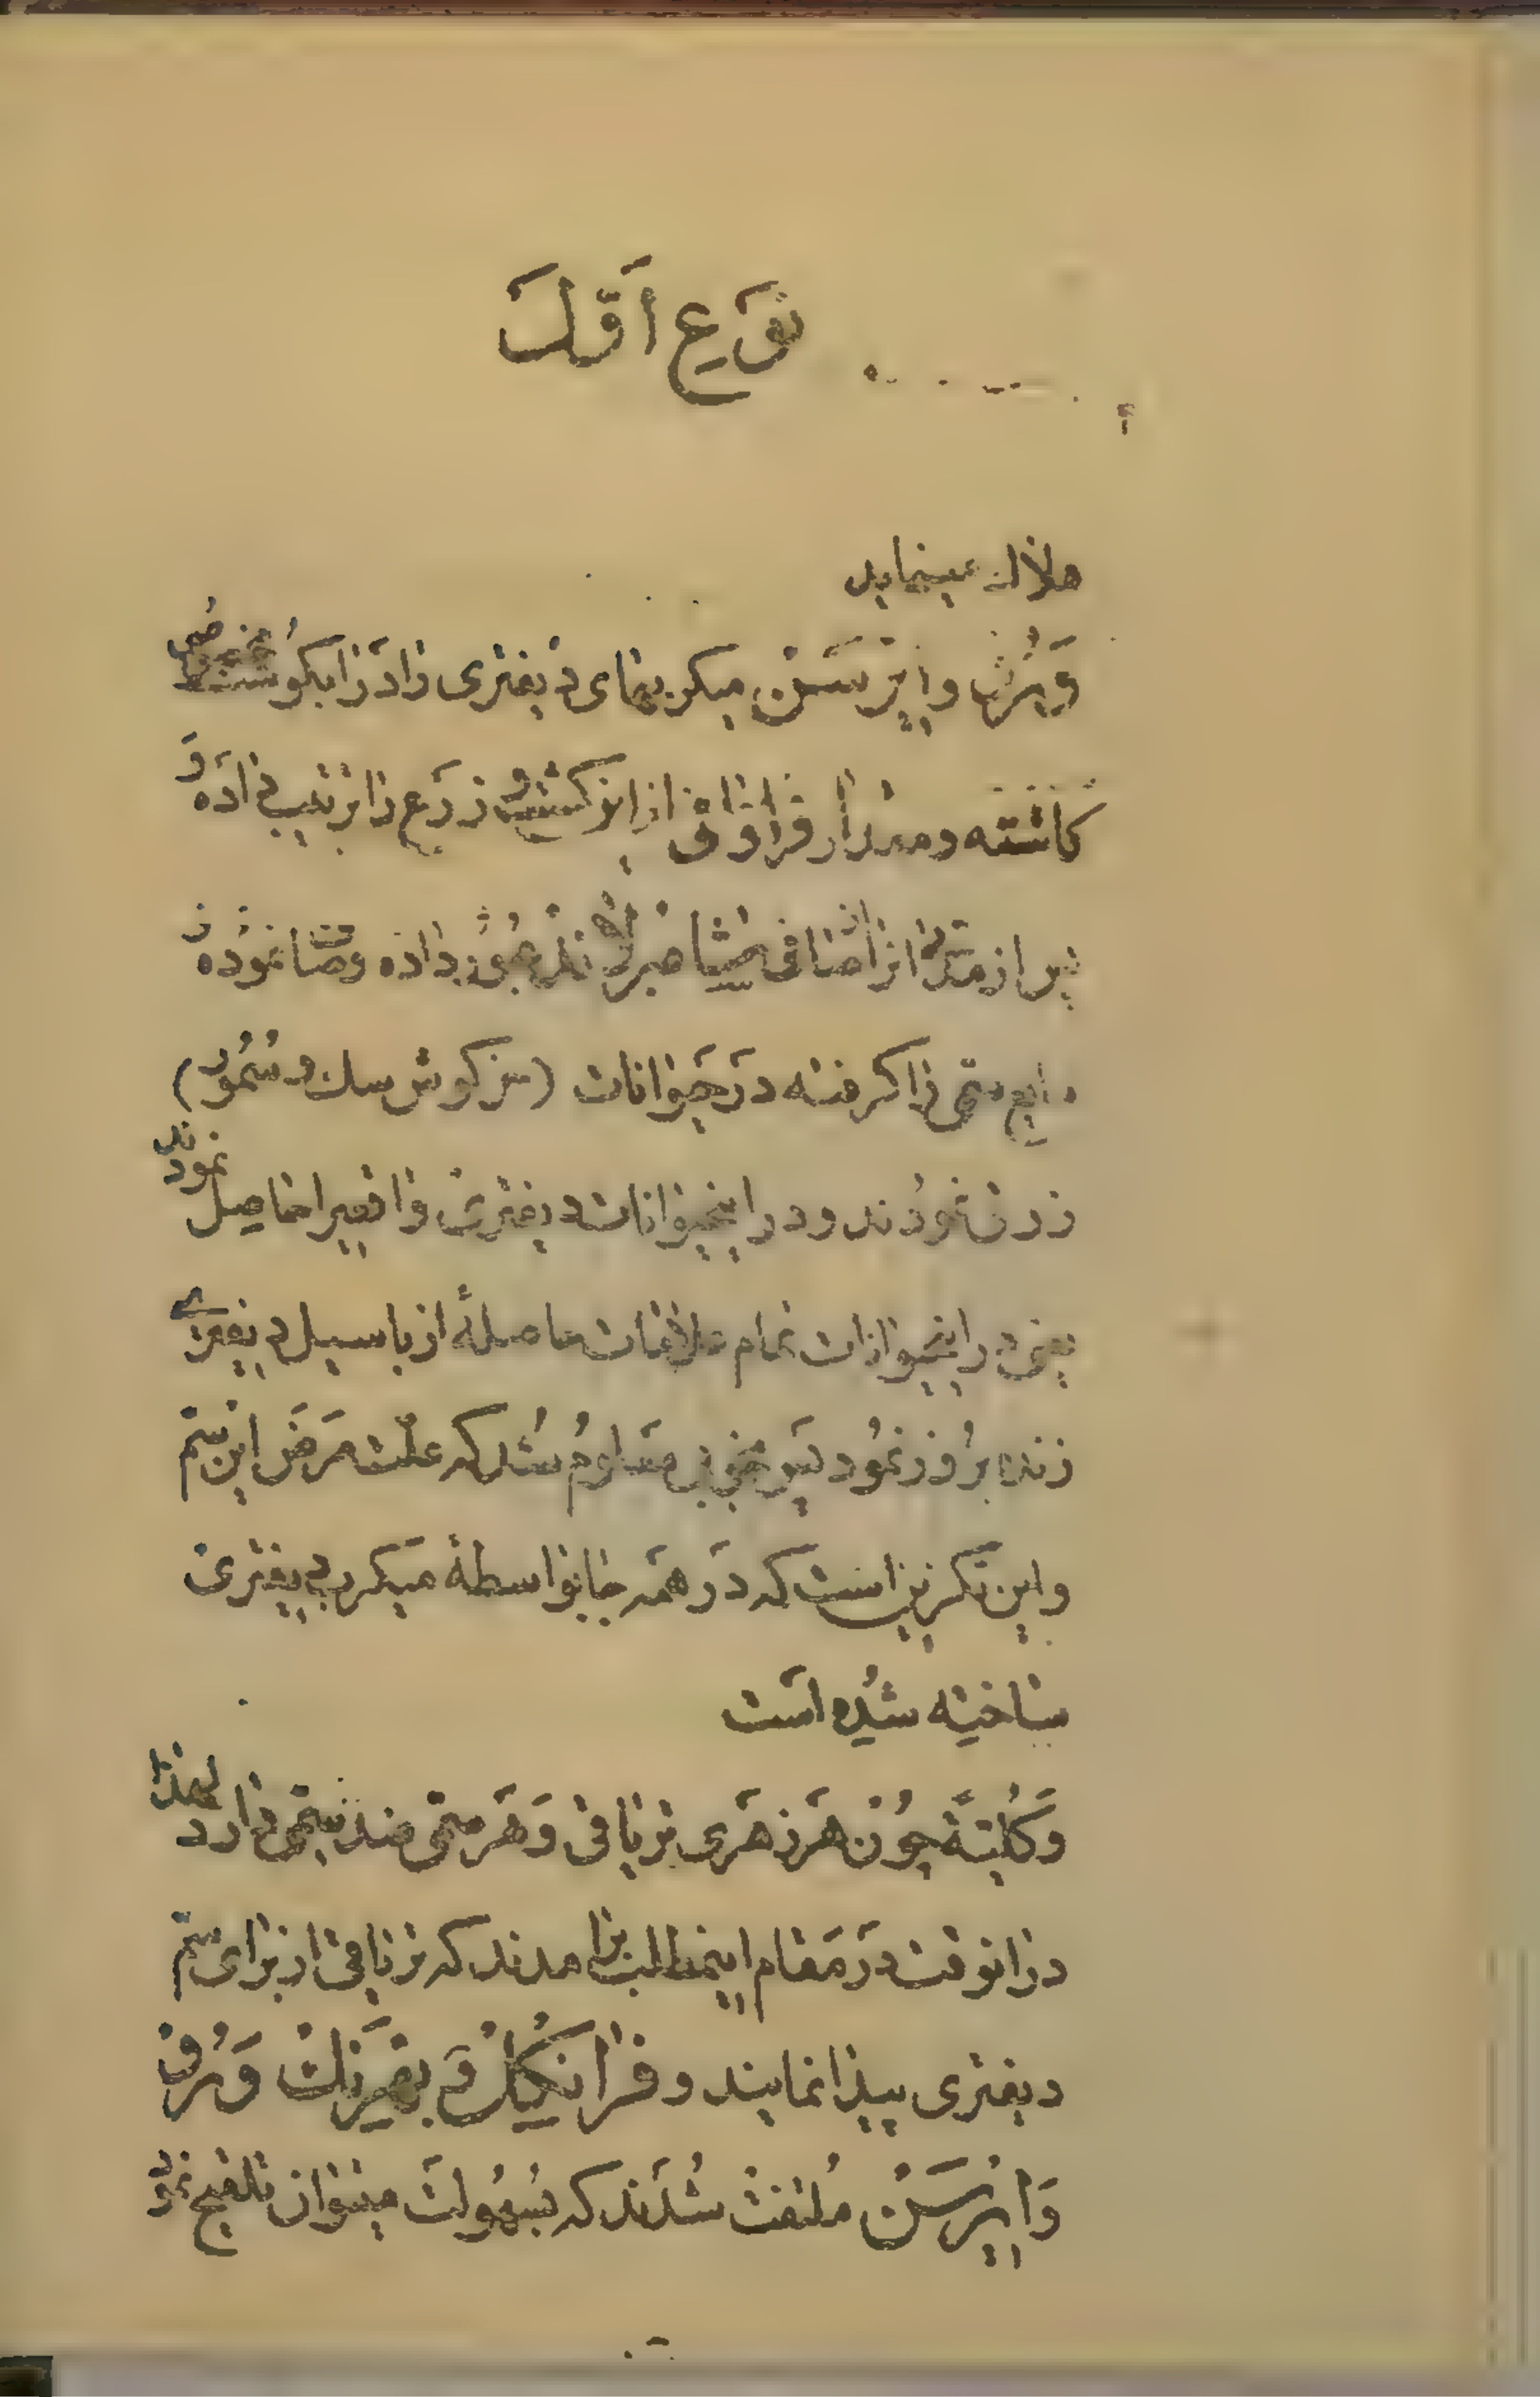 نوع اول
هلاک مینماید
و یرسن میکربهای دیفتری را در آبگوشت مخصوصی
کاشته و مقدار فراوانی از این کشت و زرع را ترتیب داده و
پس از مدتی انرا صافی نموده
مایع سمی را گرفته در حیوانات (خرگوش سک و سمور)
زرق نمودند و در اینحیوانات دیفتری واقعیرا حاصل نمودند
یعنی در اینحیوانات تمام علامات حاصلهٔ از باسیل دیفتری
زنده بروز نمود پس بخوبی معلوم شد که علت مرض این سم
و این تکزین است که در همه جا بواسطهٔ میکرب دیفتری
ساخته شده است
و کلیتهً چون هر زهری تریاقی و هر سمی ضد سمی دارد لهذا
در انوقت در مقام اینمطلب برامدند که تریاقی از برای سم
دیفتری پیدا نمایند و فرانکل و بهرنك و رو
و ایرسن ملتفت شدند که بسهولت میتوان تلقیح نمود